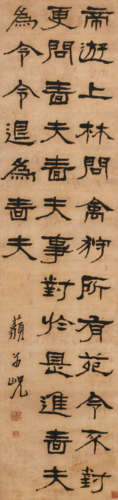 帝遊上林問禽狩所有苑令不對
更問嗇夫嗇夫事對於是進嗇夫
為令令退為嗇夫